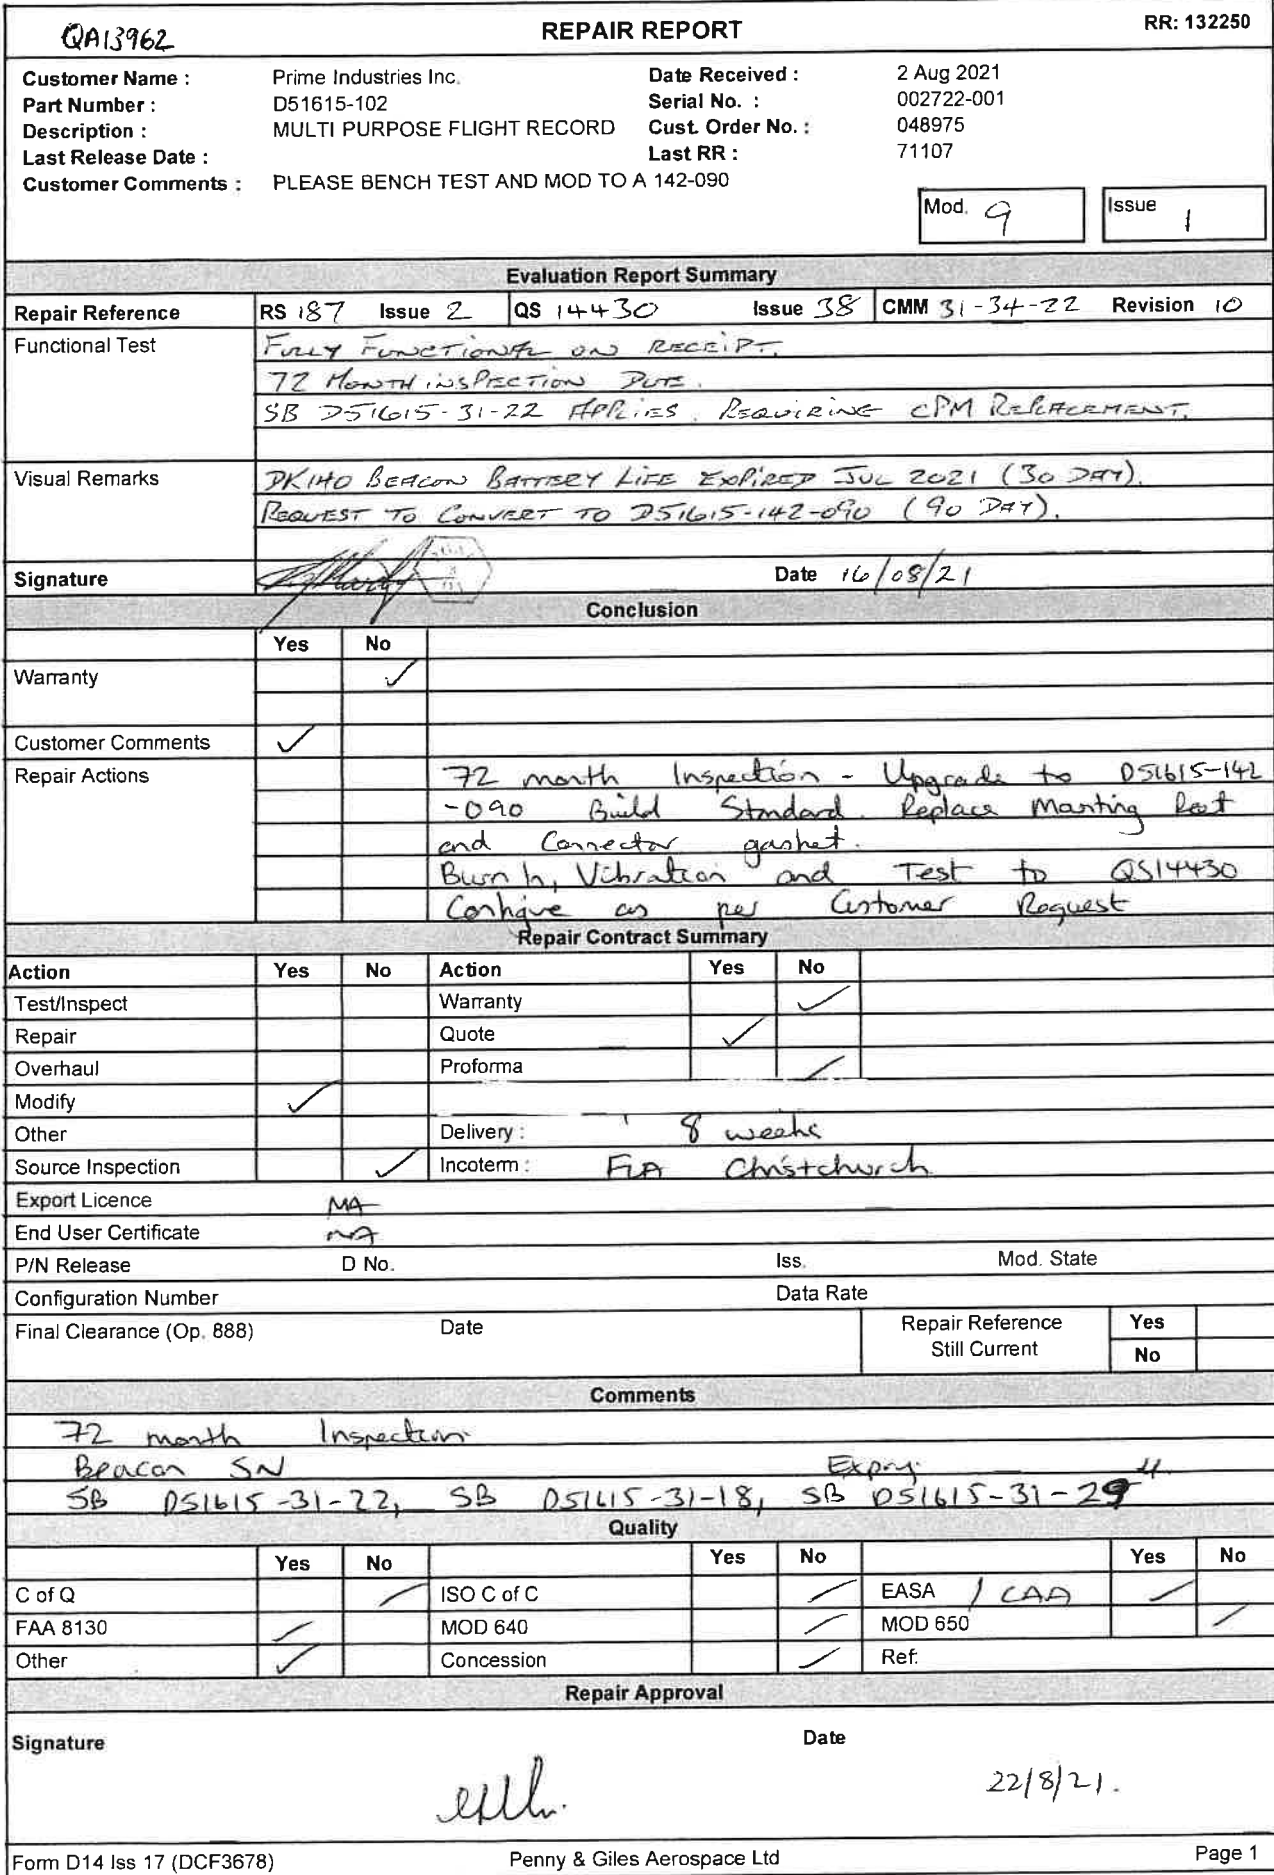 QA13962
REPAIR REPORT
RR: 132250
Customer Name : Prime Industries Inc. Date Received : 2 Aug 2021
Part Number : D51615-102 Serial No. : 002722-001
Description : MULTI PURPOSE FLIGHT RECORD Cust. Order No. : 048975
Last Release Date : Last RR : 71107
Customer Comments : PLEASE BENCH TEST AND MOD TO A 142-090
Mod. 9 Issue 1
Evaluation Report Summary
Repair Reference RS 187 Issue 2 QS 14430 Issue 38 CMM 31-34-22 Revision 10
Functional Test FULLY FUNCTIONAL ON RECEIPT.
72 MONTH INSPECTION DUE.
SB D51615-31-22 APPLIES. REQUIRING CPM REPLACEMENT.
Visual Remarks DK140 BEACON BATTERY LIFE EXPIRED JUL 2021 (30 DAY).
REQUEST TO CONVERT TO D51615-142-090 (90 DAY).
Signature Date 16/08/21
Conclusion
Yes No
Warranty ✓
Customer Comments ✓
Repair Actions 72 month Inspection - Upgrade to D51615-142
-090 Build Standard. Replace Mounting Feet
and Connector gasket.
Burn In, Vibration and Test to QS14430
Configure as per Customer Request
Repair Contract Summary
Action Yes No Action Yes No
Test/Inspect Warranty ✓
Repair Quote ✓
Overhaul Proforma ✓
Modify ✓
Other Delivery : 8 weeks
Source Inspection ✓ Incoterm : Christchurch
Export Licence NA
End User Certificate NA
P/N Release D No. Iss. Mod. State
Configuration Number Data Rate
Final Clearance (Op. 888) Date Repair Reference Yes
Still Current No
Comments
72 month Inspection
Beacon SN Expiry
SB D51615-31-22, SB D51615-31-18, SB D51615-31-29
Quality
Yes No Yes No Yes No
C of Q ✓ ISO C of C ✓ EASA / CAA ✓
FAA 8130 ✓ MOD 640 ✓ MOD 650 ✓
Other ✓ Concession ✓ Ref.
Repair Approval
Signature Date
22/8/21.
Form D14 Iss 17 (DCF3678) Penny & Giles Aerospace Ltd Page 1